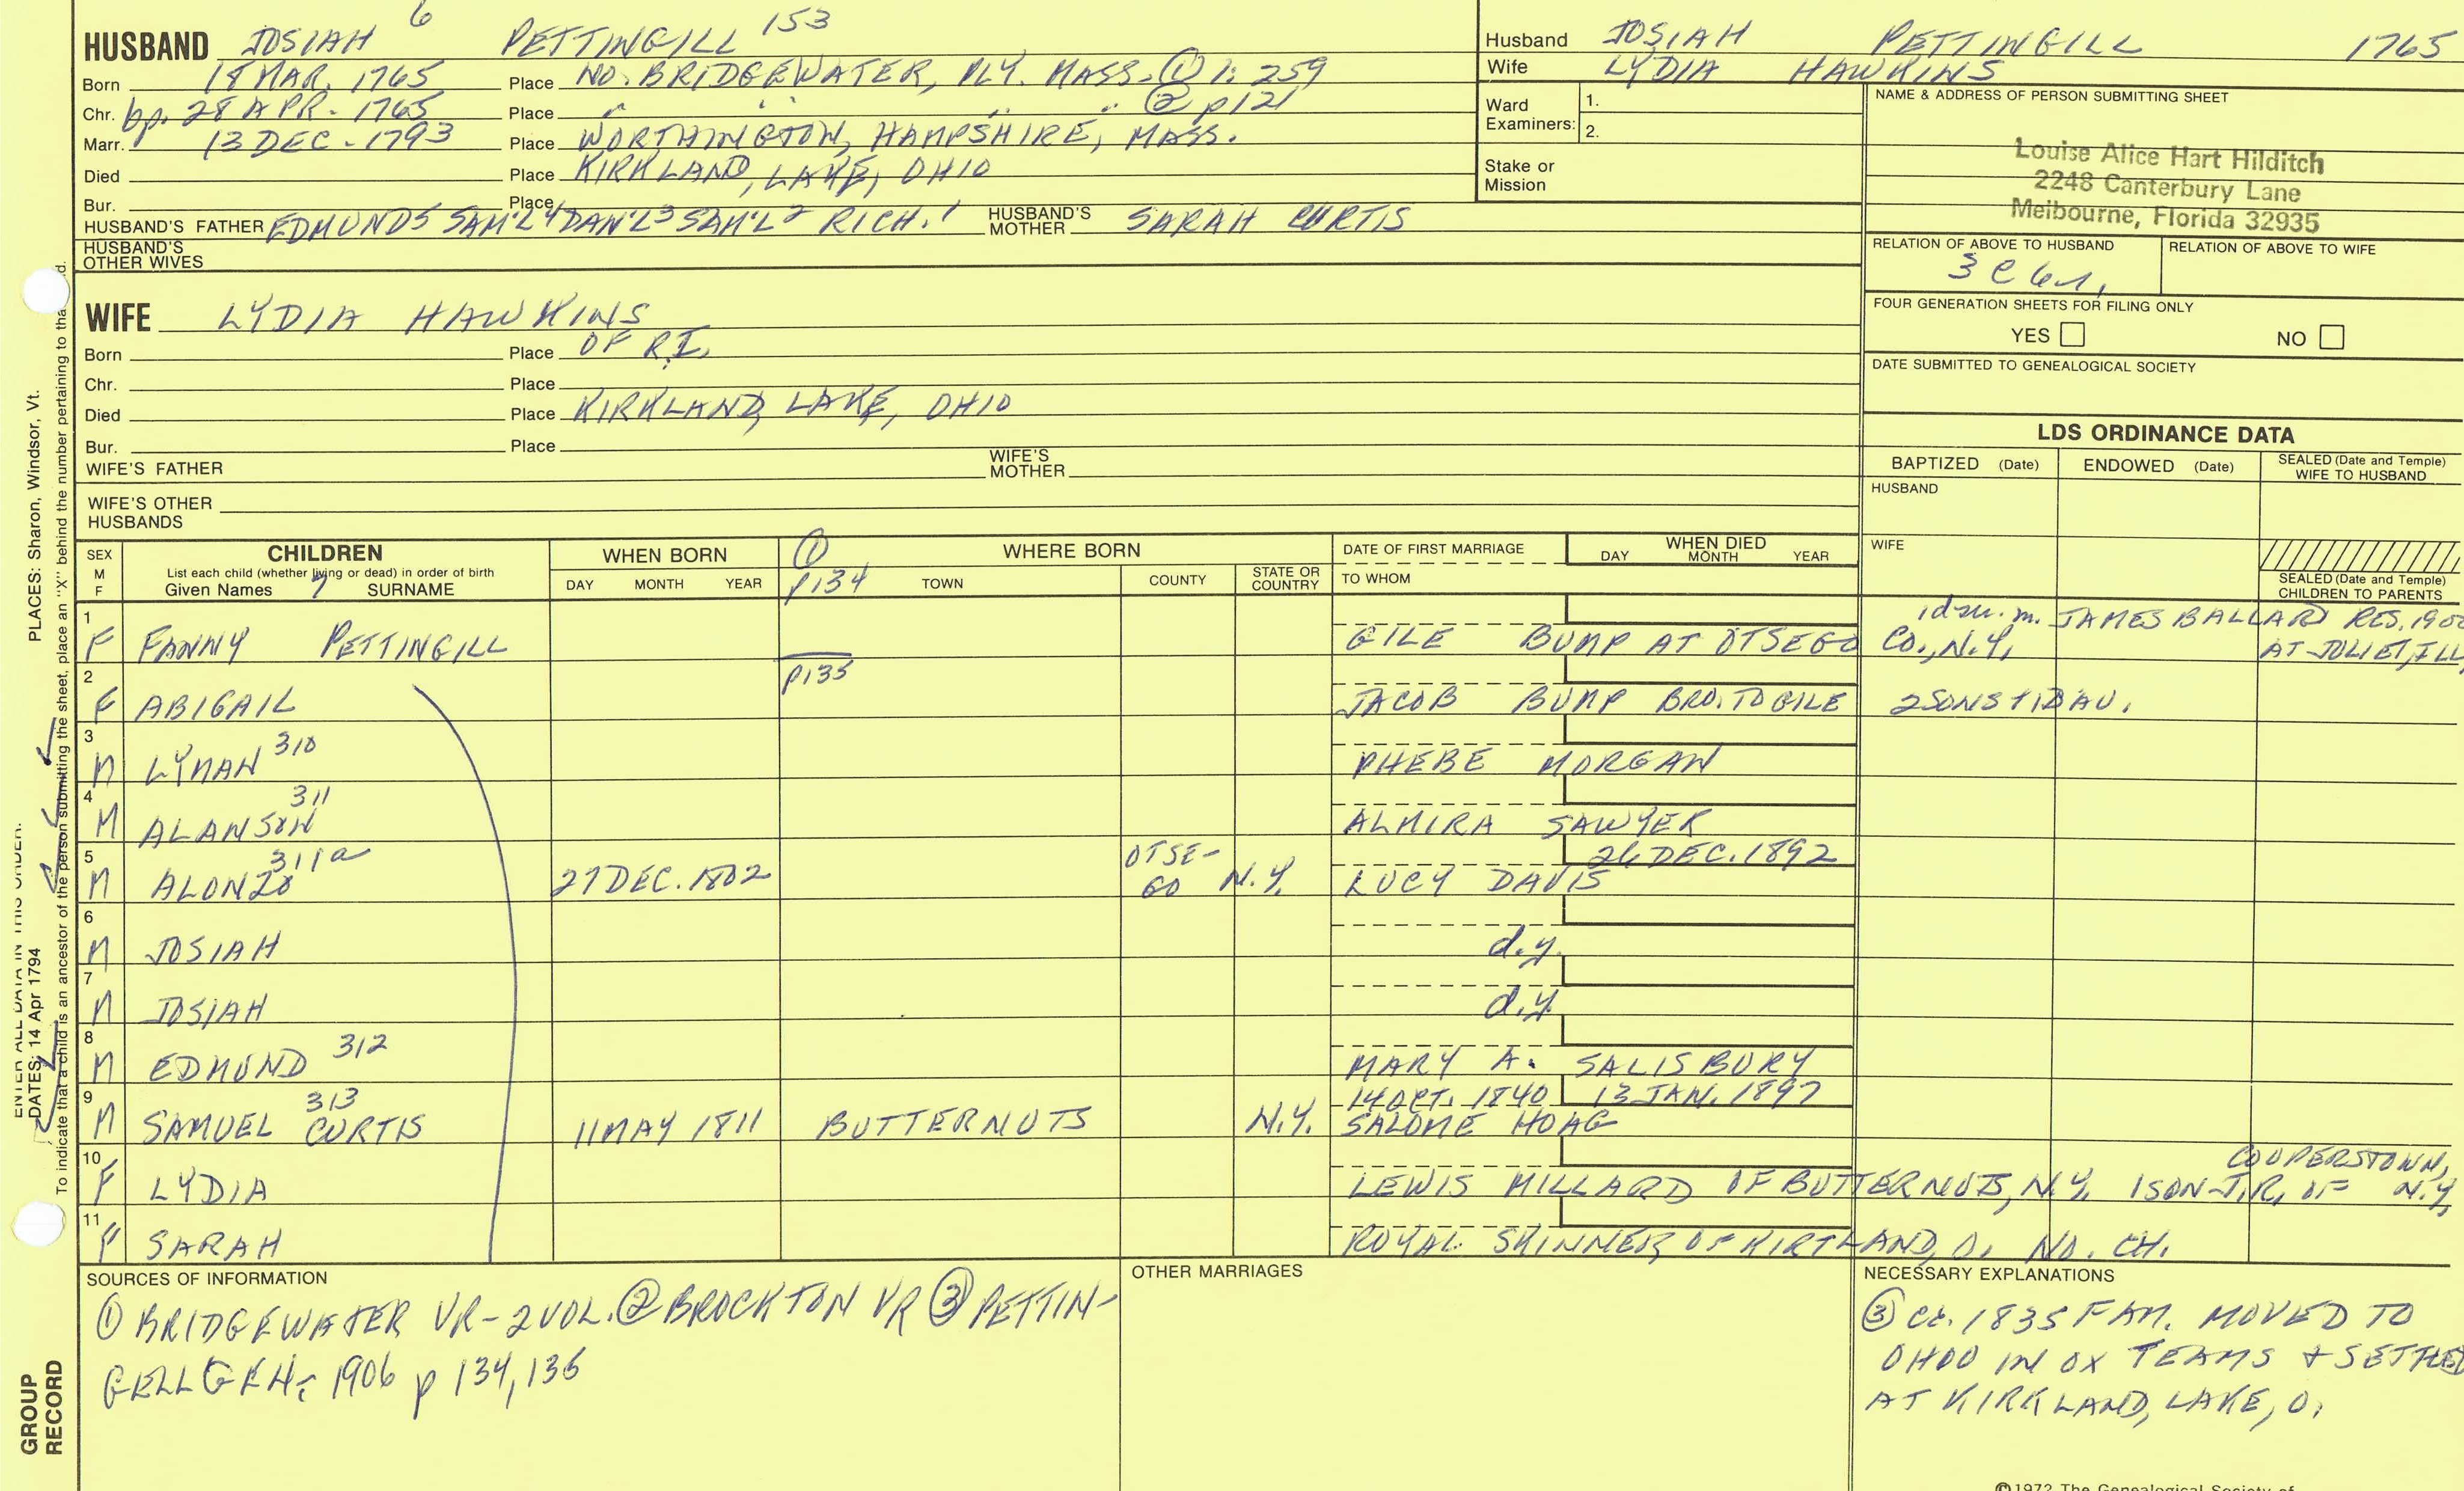 HUSBAND JOSIAH 6 PETTINGILL 153
Born 18 MAR. 1765 Place NO. BRIDGEWATER, PLY. MASS. ① 1: 259
Chr. bp. 28 APR. 1765 Place " " " " ② p121
Marr. 13 DEC. 1793 Place WORTHINGTON, HAMPSHIRE, MASS.
Died Place KIRKLAND, LAKE, OHIO
Bur. Place
HUSBAND'S FATHER EDMUND5 SAM'L4 DAN'L3 SAM'L2 RICH.1 HUSBAND'S MOTHER SARAH CURTIS
HUSBAND'S OTHER WIVES
WIFE LYDIA HAWKINS
Born Place OF R.I.
Chr. Place
Died Place KIRKLAND, LAKE, OHIO
Bur. Place
WIFE'S FATHER WIFE'S MOTHER
WIFE'S OTHER HUSBANDS
Husband JOSIAH PETTINGILL 1765
Wife LYDIA HAWKINS
Ward Examiners: 1.
2.
Stake or Mission
NAME & ADDRESS OF PERSON SUBMITTING SHEET
Louise Alice Hart Hilditch
2248 Canterbury Lane
Melbourne, Florida 32935
RELATION OF ABOVE TO HUSBAND RELATION OF ABOVE TO WIFE
3 C 6r.
FOUR GENERATION SHEETS FOR FILING ONLY
YES NO
DATE SUBMITTED TO GENEALOGICAL SOCIETY
LDS ORDINANCE DATA
BAPTIZED (Date) ENDOWED (Date) SEALED (Date and Temple) WIFE TO HUSBAND
HUSBAND
WIFE
SEALED (Date and Temple) CHILDREN TO PARENTS
SEX M F
CHILDREN
List each child (whether living or dead) in order of birth
Given Names 7 SURNAME
WHEN BORN
DAY MONTH YEAR
① WHERE BORN
p134 TOWN COUNTY STATE OR COUNTRY
DATE OF FIRST MARRIAGE
TO WHOM
WHEN DIED
DAY MONTH YEAR
1 F FANNY PETTINGILL GILE BUMP AT OTSEGO CO., N.Y. 1 dau. m. JAMES BALLARD RES. 1900 AT JOLIET, ILL
p135
2 F ABIGAIL JACOB BUMP BRO. TO GILE 2 SONS & 1 DAU.
3 M LYMAN 310 PHEBE MORGAN
4 M ALANSON 311 ALMIRA SAWYER
5 M ALONZO 311a 27 DEC. 1802 OTSE-GO N.Y. 26 DEC. 1892 LUCY DAVIS
6 M JOSIAH d.y.
7 M JOSIAH d.y.
8 M EDMUND 312 MARY A. SALISBURY
9 M SAMUEL CURTIS 313 11 MAY 1811 BUTTERNUTS N.Y. 14 OCT. 1840 13 JAN. 1897 SALOME HOAG
10 F LYDIA LEWIS MILLARD OF BUTTERNUTS, N.Y. 1 SON-J.R. OF COOPERSTOWN, N.Y.
11 F SARAH ROYAL SKINNER OF KIRTLAND, O. NO. CH.
SOURCES OF INFORMATION
① BRIDGEWATER VR-2VOL. ② BROCKTON VR ③ PETTIN-
GELL GEN. 1906 p 134, 135
OTHER MARRIAGES
NECESSARY EXPLANATIONS
③ Ca. 1835 FAM. MOVED TO
OHIO IN OX TEAMS & SETTLED
AT KIRKLAND, LAKE, O.
©1972 The Genealogical Society of
PLACES: Sharon, Windsor, Vt.
ENTER ALL DATA IN THIS ORDER:
DATES: 14 Apr 1794
To indicate that a child is an ancestor of the person submitting the sheet, place an "X" behind the number pertaining to that
GROUP RECORD